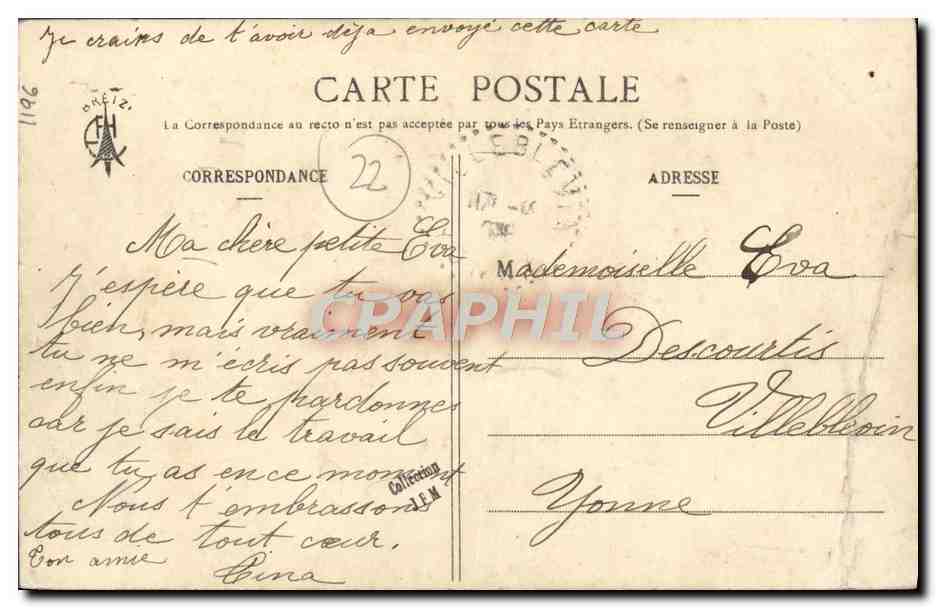 Je crains de t'avoir déja envoyé cette carte
1196
BREIZ
CARTE POSTALE
La Correspondance au recto n'est pas acceptée par tous les Pays Etrangers. (Se renseigner à la Poste)
CORRESPONDANCE
22
VILLEBLEVIN
ADRESSE
Ma chère petite Eva
J'espère que tu vas
bien, mais vraiment
tu ne m'écris pas souvent
enfin je te pardonnes
car je sais le travail
que tu as en ce moment
Nous t'embrassons
tous de tout cœur.
Ton amie
Tina
Collection
J.F.M
Mademoiselle Eva
Descourtis
Villeblevin
Yonne
CPAPHIL